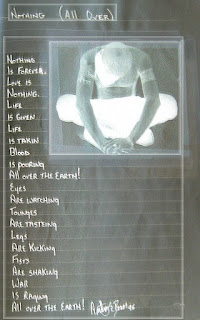 Nothing (All Over)
Nothing
Is Forever.
Love is
Nothing.
Life
Is Given
Life
Is takin
Blood
is pooring
All over the Earth!
Eyes
Are watching
Tounges
Are tasteing
Legs
Are Kicking
Fists
Are shaking
War
Is Raging
All over the Earth!